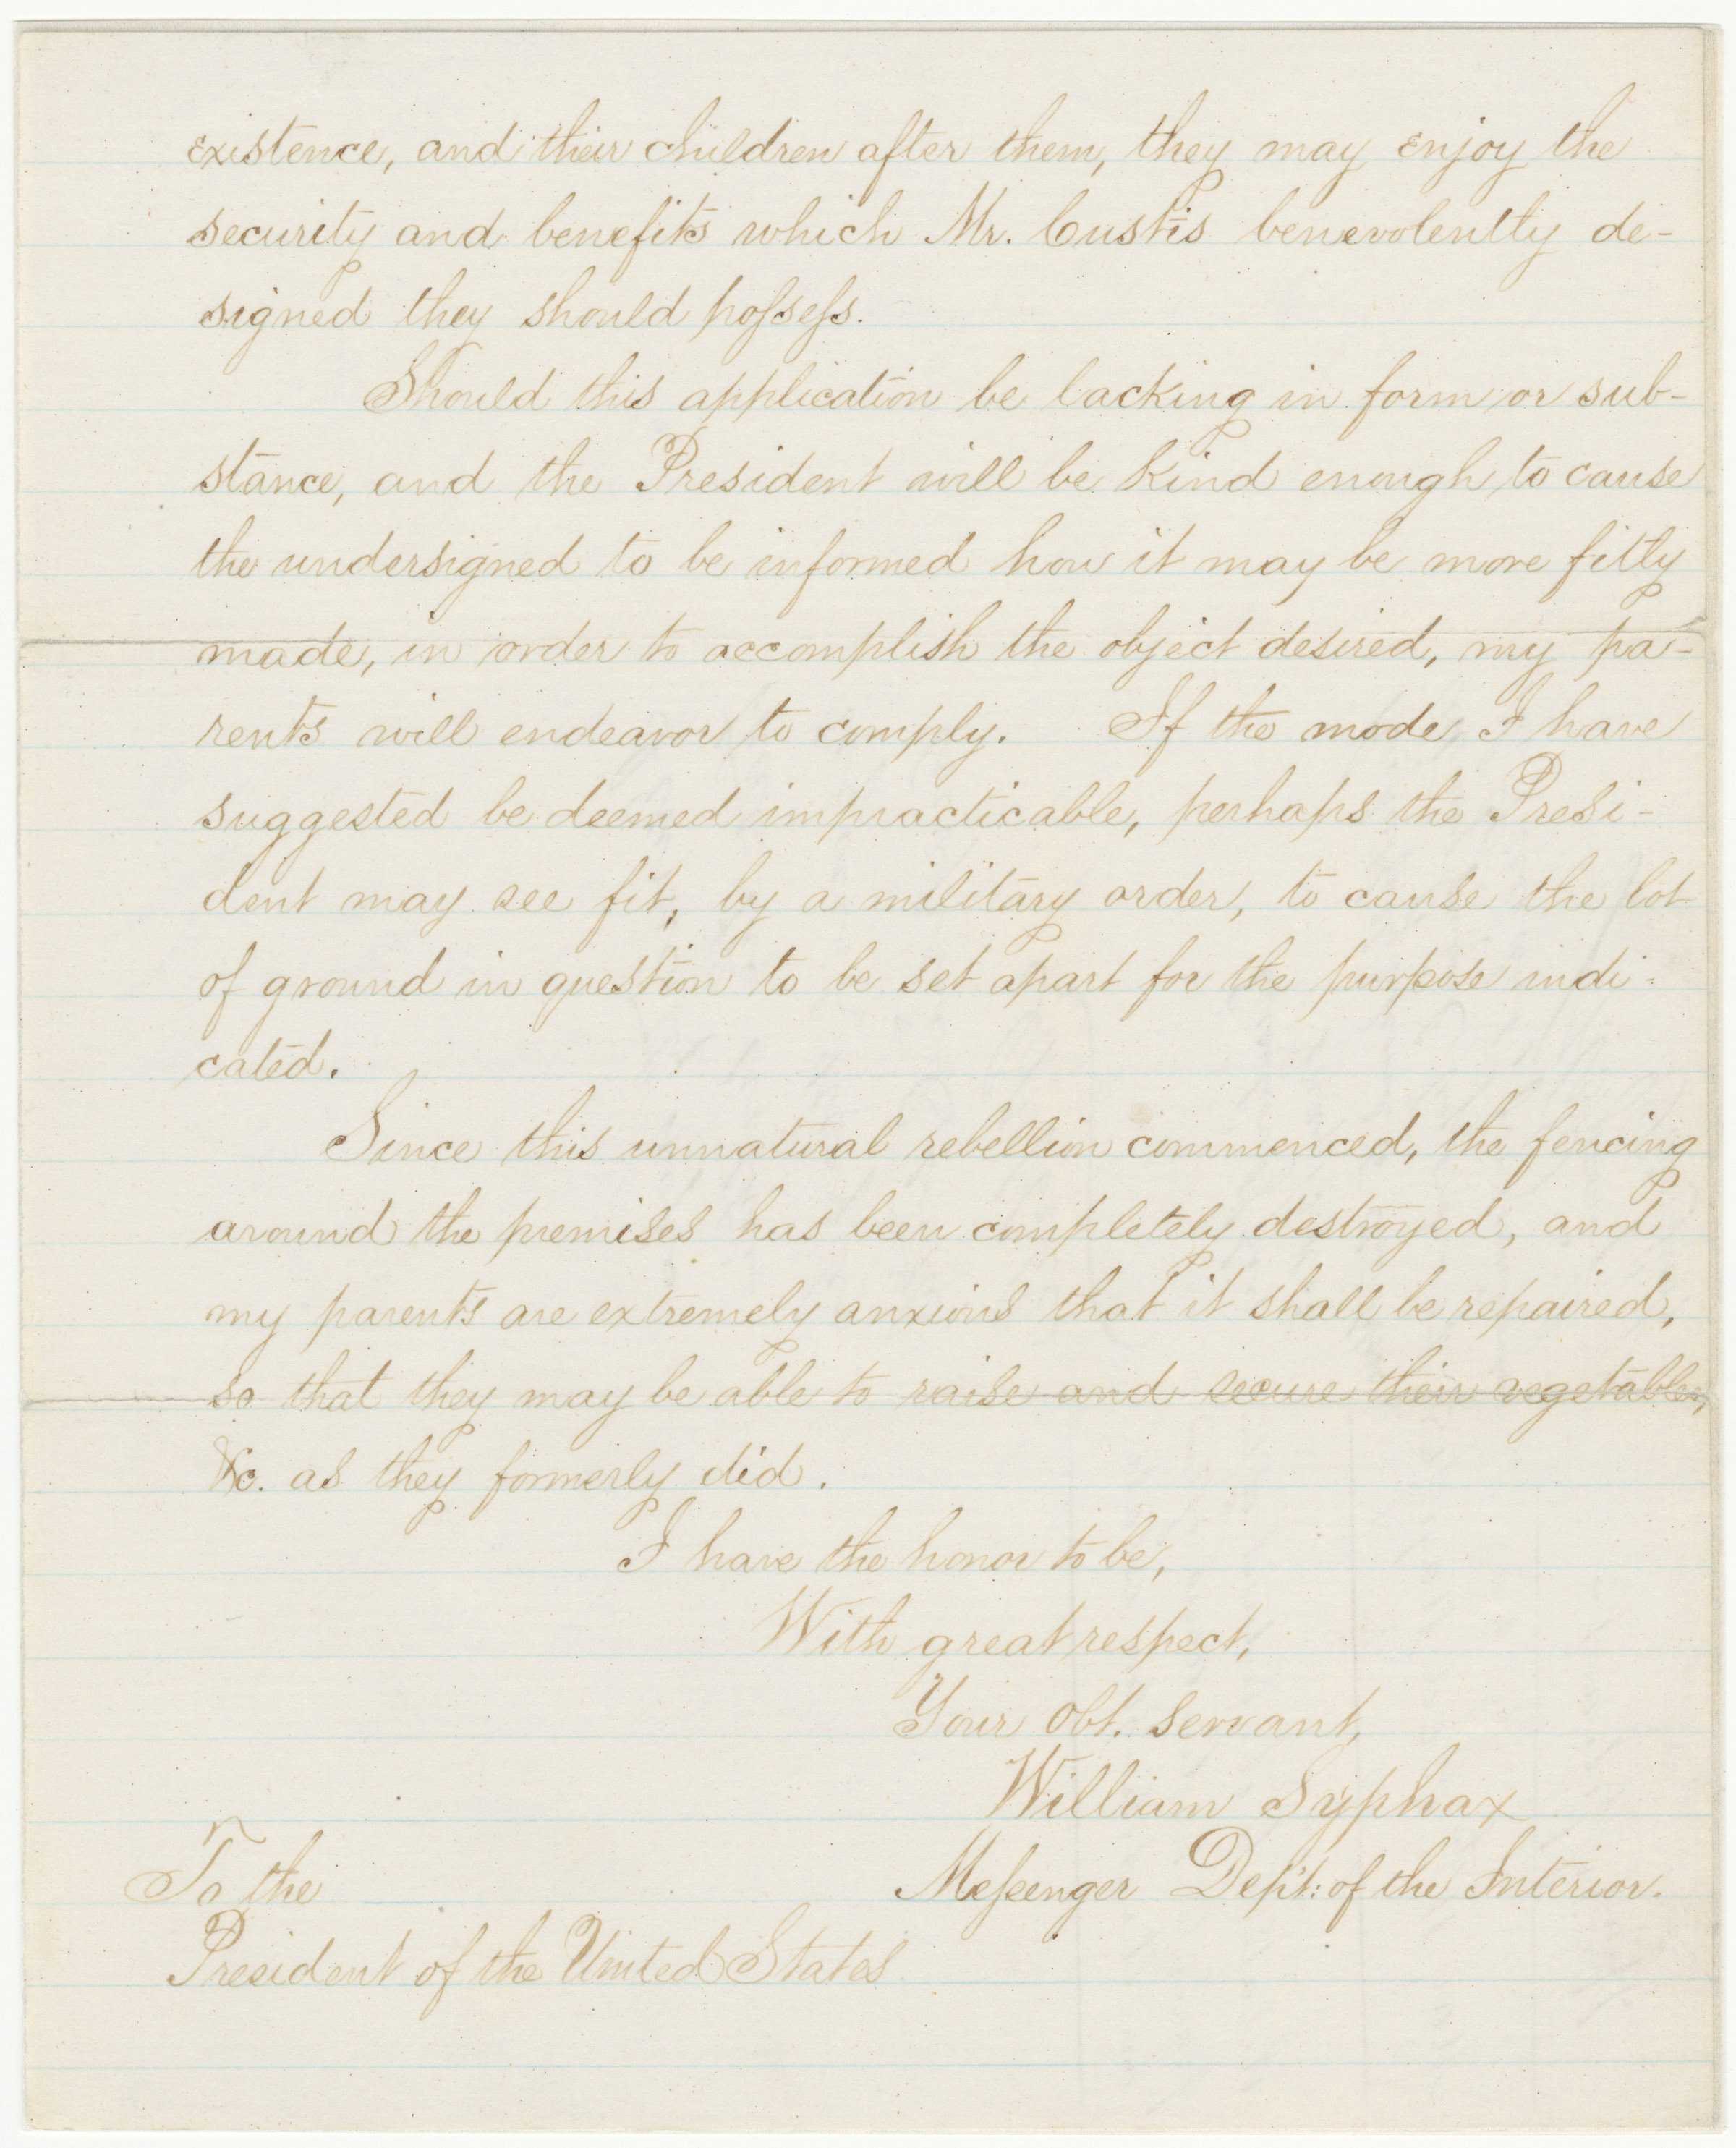 existence, and their children after them, they may enjoy the
security and benefits which Mr. Custis benevolently de-
signed they should possess.
Should this application be lacking in form or sub-
stance, and the President will be kind enough to cause
the undersigned to be informed how it may be more fitly
made, in order to accomplish the object desired, my pa-
rents will endeavor to comply. If the mode I have
suggested be deemed impracticable, perhaps the Presi-
dent may see fit, by a military order, to cause the lot
of ground in question to be set apart for the purpose indi-
cated.
Since this unnatural rebellion commenced, the fencing
around the premises has been completely destroyed, and
my parents are extremely anxious that it shall be repaired,
so that they may be able to raise and secure their vegetables,
&c. as they formerly did.
I have the honor to be,
With great respect,
Your obt. servant,
William Syphax
Messenger Dep't: of the Interior.
To the
President of the United States